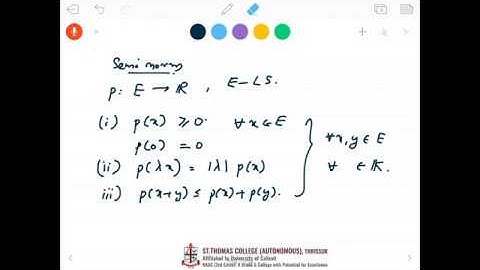 Semi norms
p: E → ℝ, E-LS.
(i) p(x) ≥ 0 ∀ x ∈ E
p(0) = 0
(ii) p(λx) = |λ| p(x)
iii) p(x+y) ≤ p(x)+p(y).
∀ x, y ∈ E
∀ ∈ 𝕂.
ST.THOMAS COLLEGE (AUTONOMOUS), THRISSUR
Affiliated to University of Calicut
NAAC (3rd Cycle) A Grade & College with Potential for Excellence